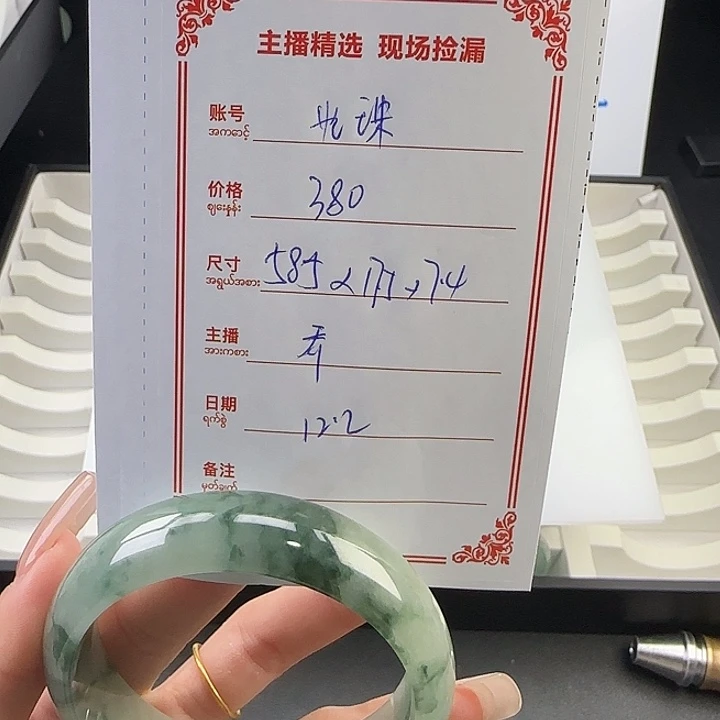 主播精选 现场捡漏
账号
အကောင့်
价格 380
ဈေးနှုန်း
尺寸 585×
အရွယ်အစား 7.4
主播
အားကစား
日期 12.2
ရက်စွဲ
备注
မှတ်ချက်